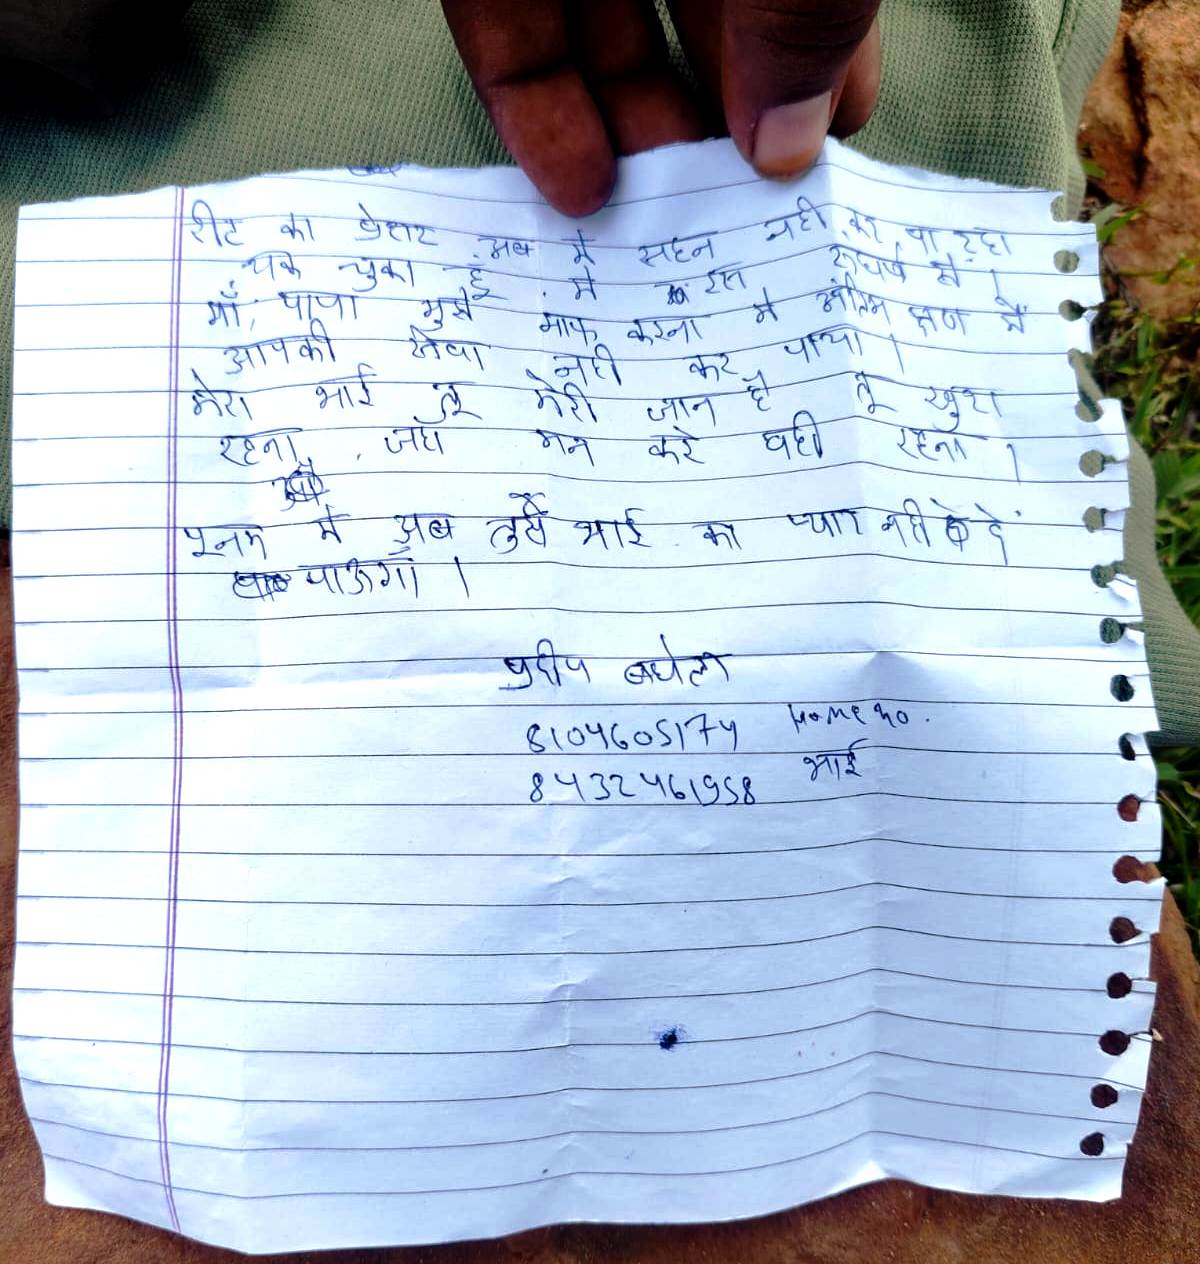 रीट का प्रेशर अब मे सहन नही कर पा रहा
थक चुका हूं मे इस संघर्ष से ।
माँ, पापा मुझे माफ करना मे अंतिम क्षण में
आपकी सेवा नही कर पाया ।
मेरा भाई तू मेरी जान है तू खुश
रहना, जहाँ मन करे वही रहना ।
पूनम मे अब तुझे भाई का प्यार नही दे
पाऊगां ।
प्रदीप बघेला
8104605174 Home no.
8432461958 भाई